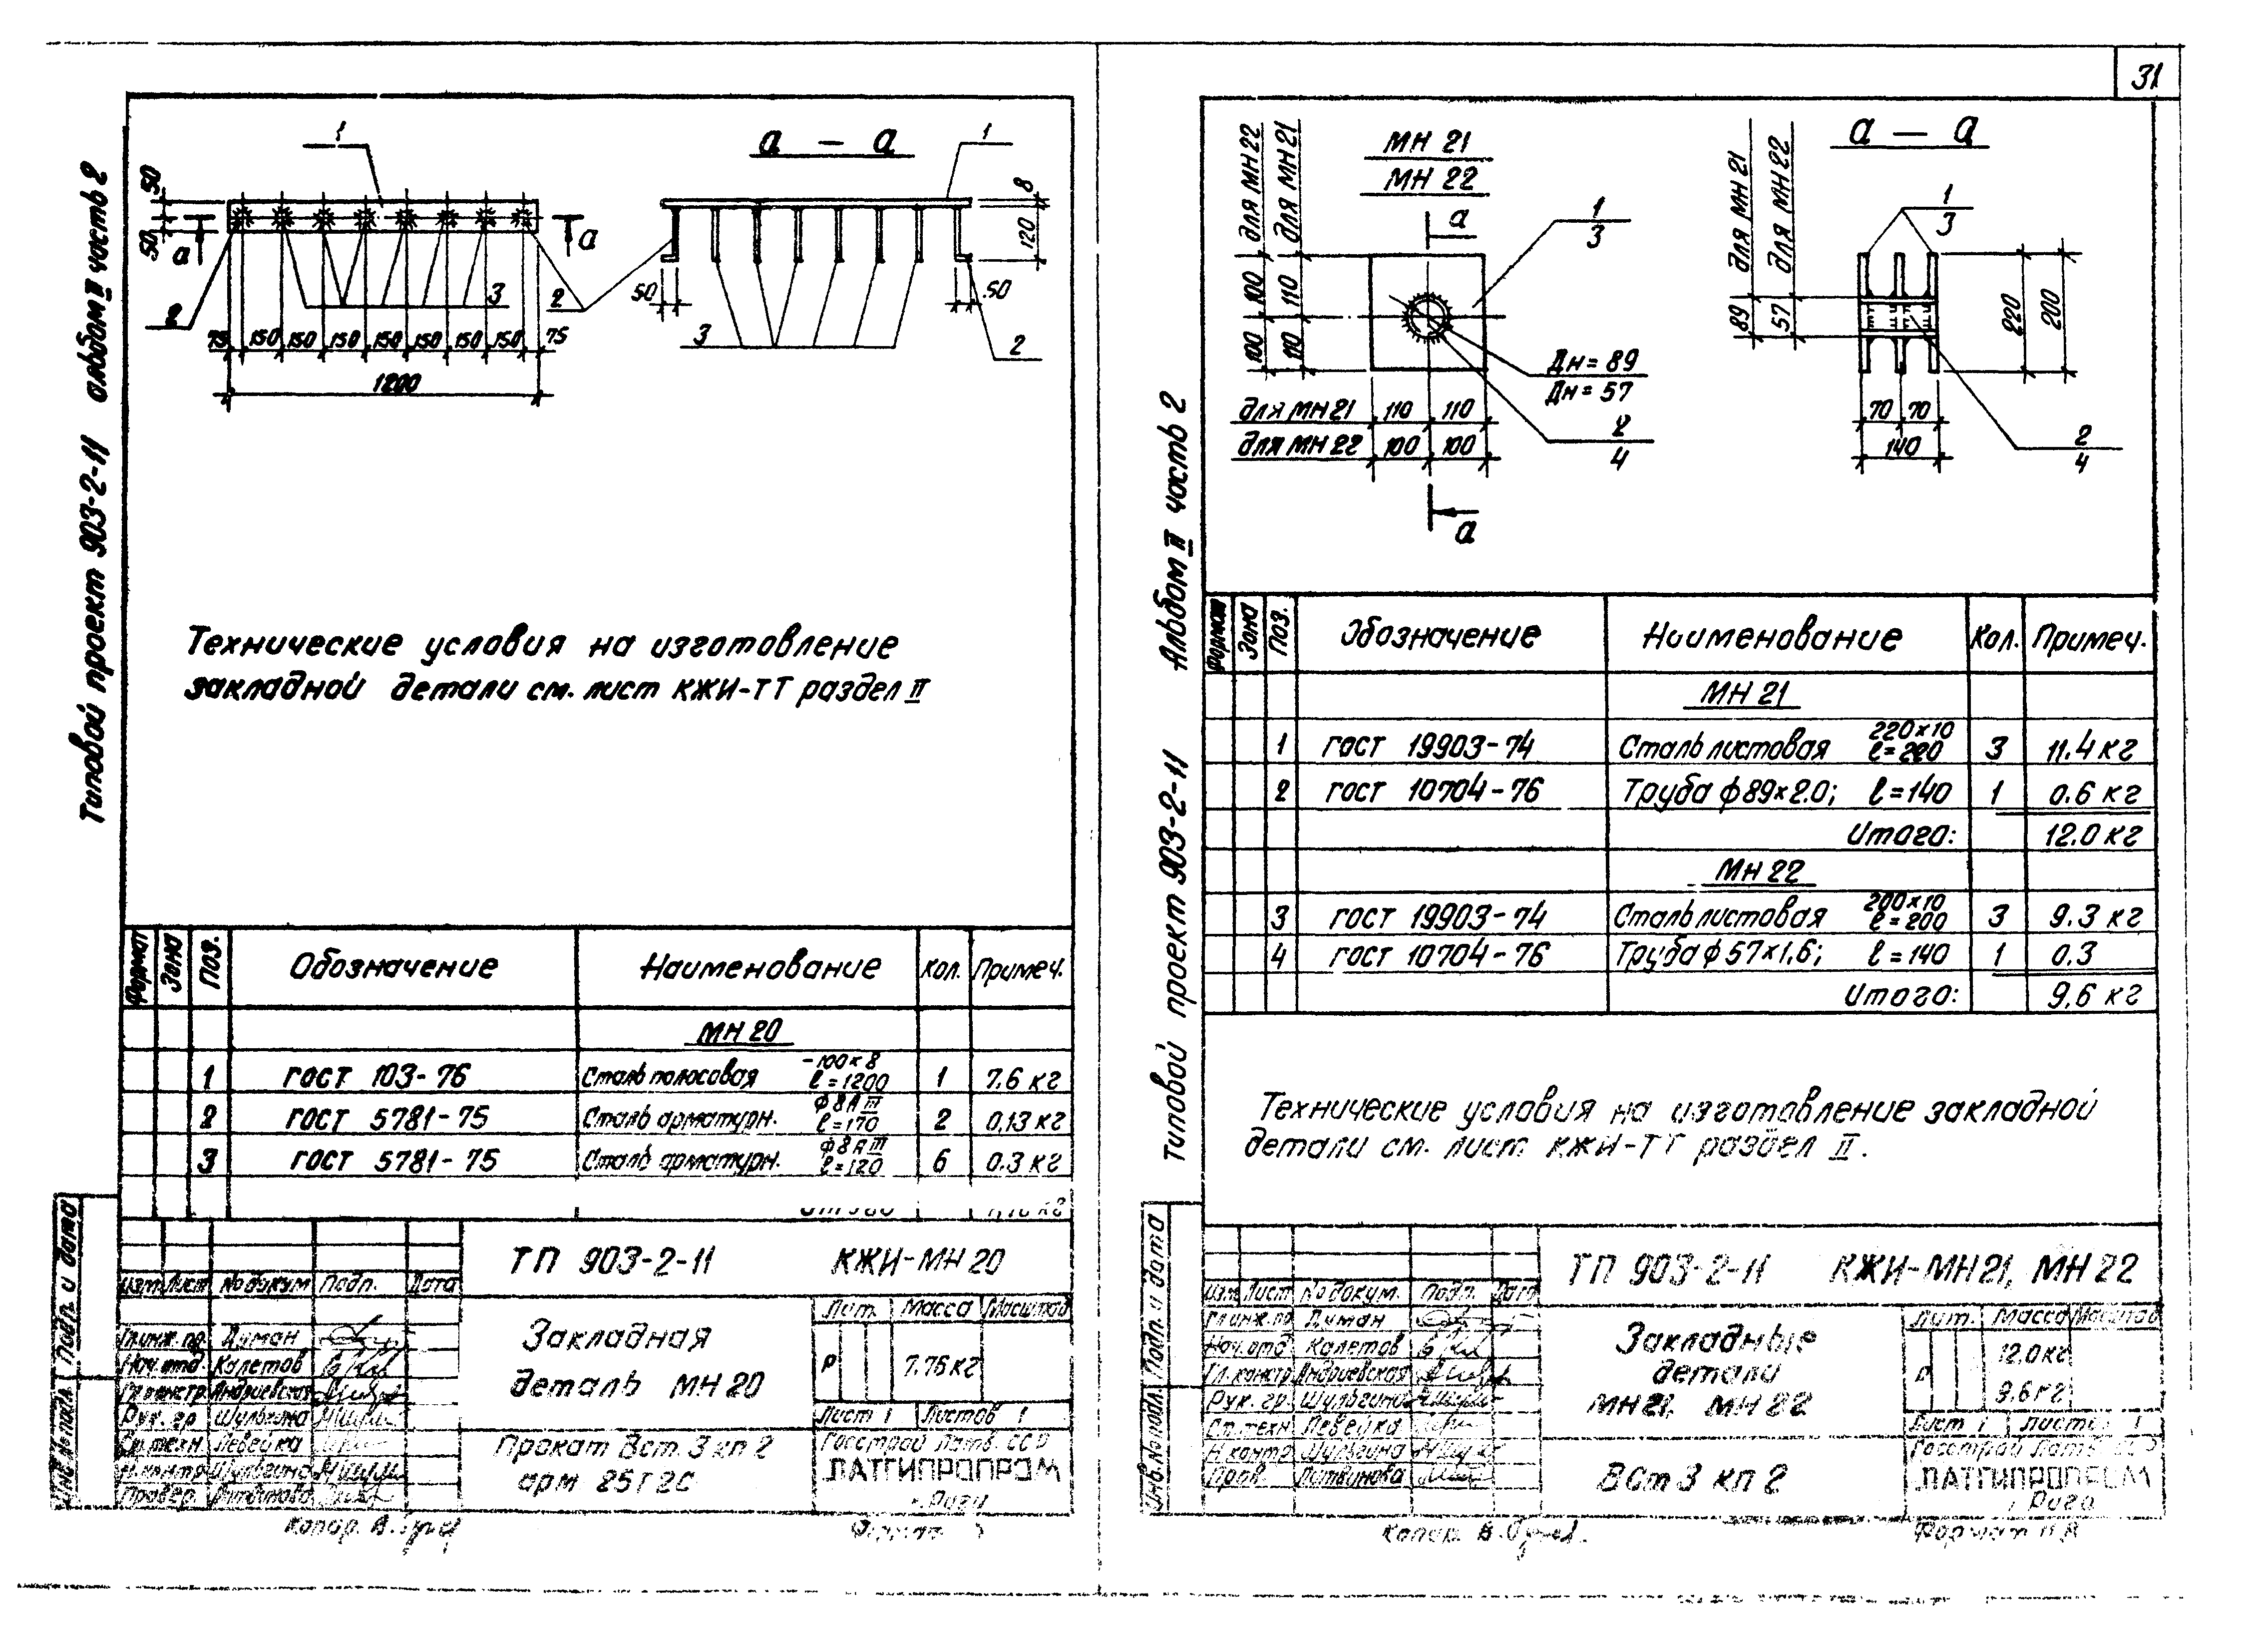 31
Типовой проект 903-2-11 альбом II часть 2
1
а — а
1
50
50
а
а
8
120
2
3
2
50
50
3
2
75 150 150 150 150 150 150 150 75
1200
Технические условия на изготовление
закладной детали см. лист КЖИ-ТТ раздел II
Формат Зона Поз. Обозначение Наименование Кол. Примеч.
МН 20
1 ГОСТ 103-76 Сталь полосовая -100×8 ℓ=1200 1 7.6 кг
2 ГОСТ 5781-75 Сталь арматурн. ф8АIII ℓ=170 2 0,13 кг
3 ГОСТ 5781-75 Сталь арматурн. ф8АIII ℓ=120 6 0.3 кг
ТП 903-2-11 КЖИ-МН 20
Изм. Лист № докум. Подп. Дата
Гл.инж.пр. Думан
Нач.отд. Калетов
Гл.констр. Андриевская
Рук. гр. Шульгина
Ст.техн. Левейка
Н.контр. Шульгина
Провер. Литвинова
Закладная
деталь МН 20
Лит. Масса Масштаб
Р 7.76 кг
Лист 1 Листов 1
Прокат Вст. 3 кп 2
арм 25Г2С
Госстрой Латв. ССР
ЛАТГИПРОПРОМ
г. Рига
Копир. В.
Подп. и дата
Инв. № подл.
Типовой проект 903-2-11 Альбом II часть 2
для МН 22
для МН 21
МН 21
МН 22
а — а
для МН 21
для МН 22
а
1
3
1
3
100 110
100 110
89 57
220 200
Дн = 89
Дн = 57
для МН 21 110 110
для МН 22 100 100
2
4
70 70
140
2
4
а
Формат Зона Поз. Обозначение Наименование Кол. Примеч.
МН 21
1 ГОСТ 19903-74 Сталь листовая 220×10 ℓ=220 3 11.4 кг
2 ГОСТ 10704-76 Труба ф 89×2.0; ℓ=140 1 0.6 кг
Итого: 12.0 кг
МН 22
3 ГОСТ 19903-74 Сталь листовая 200×10 ℓ=200 3 9.3 кг
4 ГОСТ 10704-76 Труба ф 57×1,6; ℓ=140 1 0.3
Итого: 9,6 кг
Технические условия на изготовление закладной
детали см. лист КЖИ-ТТ раздел II.
ТП 903-2-11 КЖИ-МН21, МН 22
Изм. Лист № докум. Подп. Дата
Гл.инж.пр. Думан
Нач.отд. Калетов
Гл.констр. Андриевская
Рук. гр. Шульгина
Ст.техн. Левейка
Н.контр. Шульгина
Пров. Литвинова
Закладные
детали
МН21, МН 22
Лит. Масса Масштаб
Р 12,0 кг
9,6 кг
Лист 1 Листов 1
ВСт 3 кп 2
Госстрой Латв. ССР
ЛАТГИПРОПРОМ
г. Рига
Копир. В.
Формат
Подп. и дата
Инв. № подл.